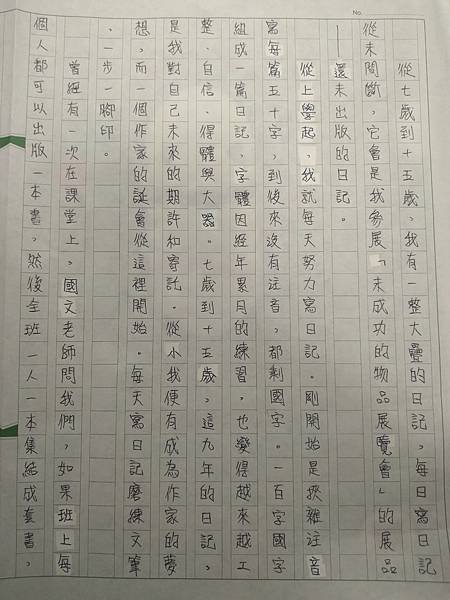 No.
從七歲到十五歲，我有一整大疊的日記，每日寫日記
從未間斷，它會是我參展「未成功的物品展覽會」的展品
——還未出版的日記。
從上學起，我就每天努力寫日記。剛開始是挾雜注音
寫每篇五十字，到後來沒有注音，都剩國字。一百字國字
組成一篇日記，字體因經年累月的練習，也變得越來越工
整、自信、得體與大器。七歲到十五歲，這九年的日記，
是我對自己未來的期許和寄託。從小我便有成為作家的夢
想，而一個作家的誕會從這裡開始。每天寫日記磨練文筆
，一步一腳印。
曾經有一次在課堂上，國文老師問我們，如果班上每
個人都可以出版一本書，然後全班一人一本集結成套書，